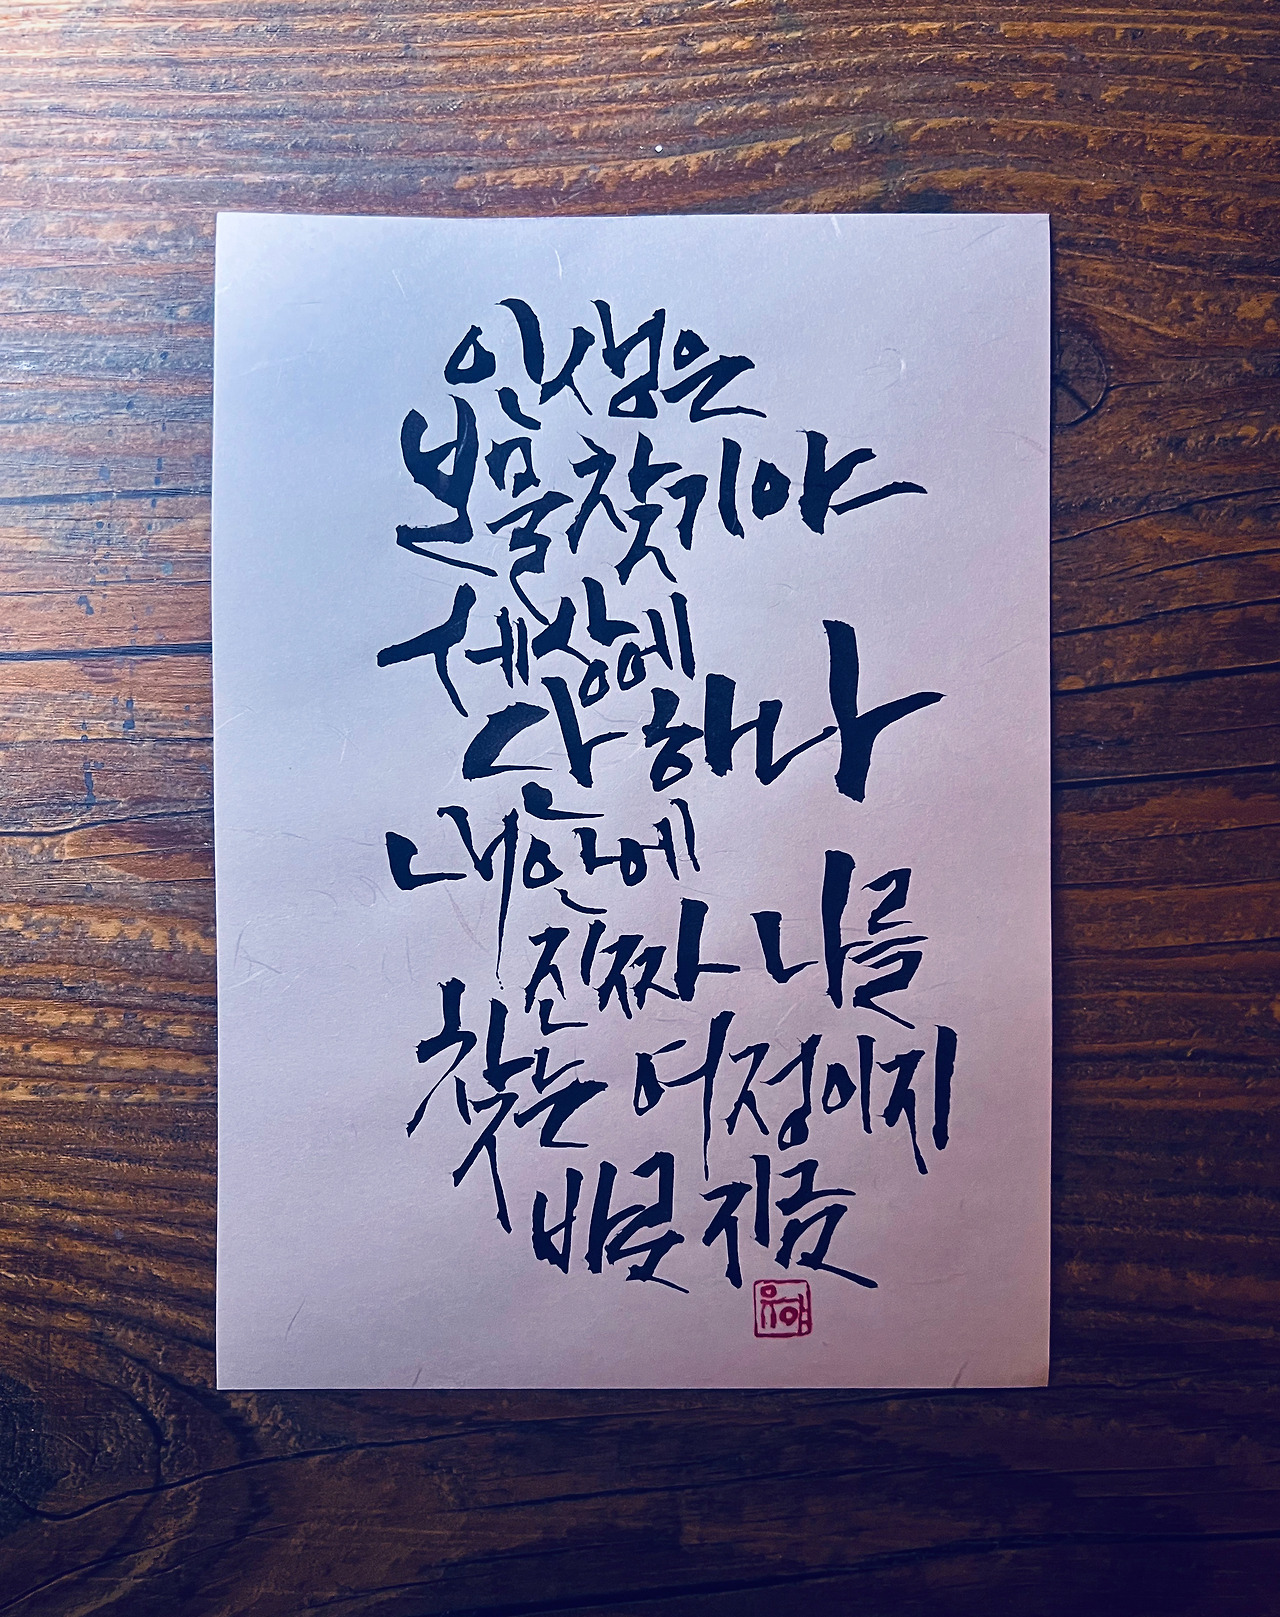 인생은
보물찾기야
세상에
단 하나
내 안에
진짜 나를
찾는 여정이지
바로 지금
유야